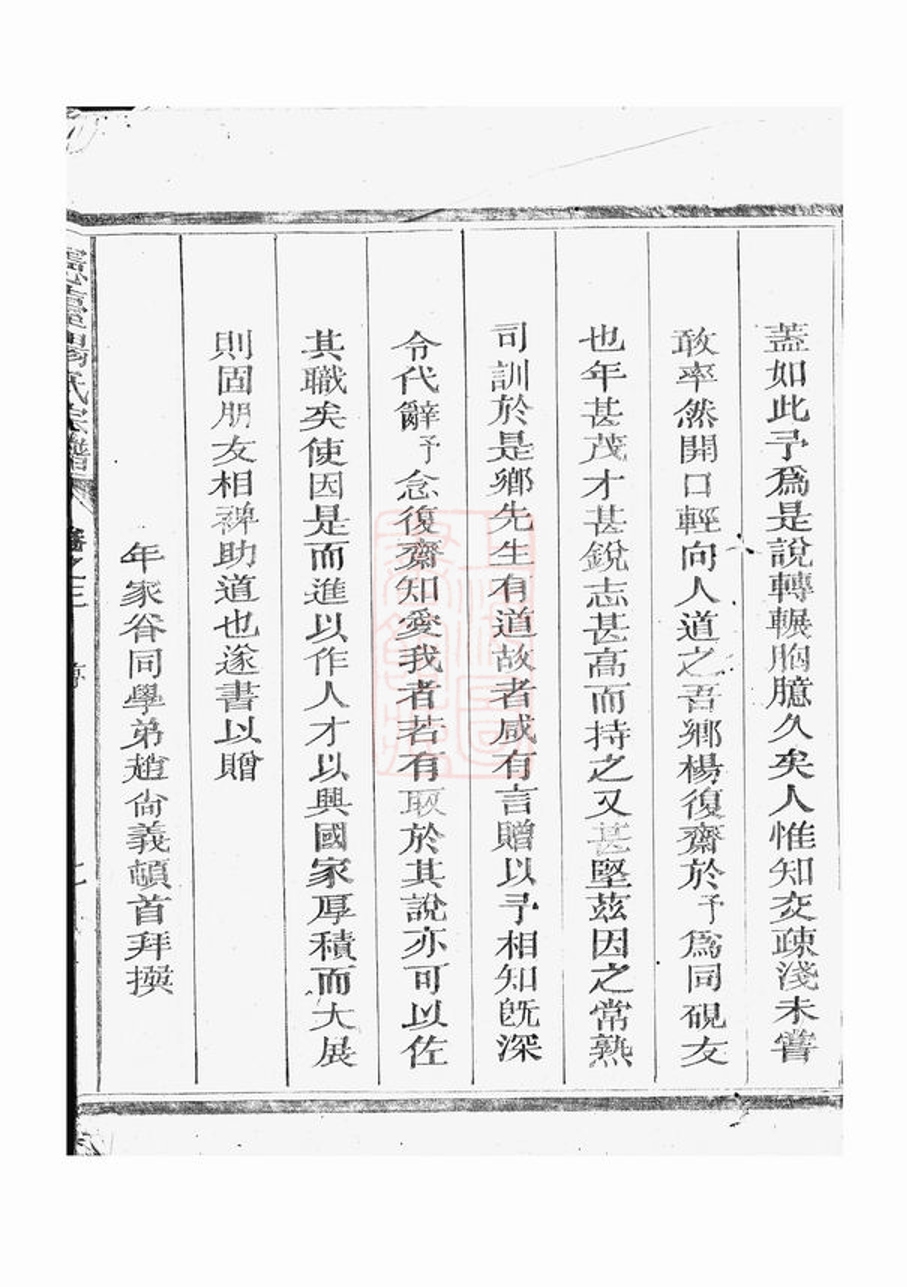 蓋如此予爲是說轉輾胸臆久矣人惟知交疎淺未嘗
敢率然開口輕向人道之吾鄉楊復齋於予爲同硯友
也年甚茂才甚銳志甚高而持之又甚堅茲因之常熟
司訓於是鄉先生有道故者咸有言贈以予相知旣深
令代辭予念復齋知愛我者若有取於其說亦可以佐
其職矣使因是而進以作人才以興國家厚積而大展
則固朋友相裨助道也遂書以贈
年家眷同學弟趙尙義頓首拜撰
楊氏宗譜
卷之三